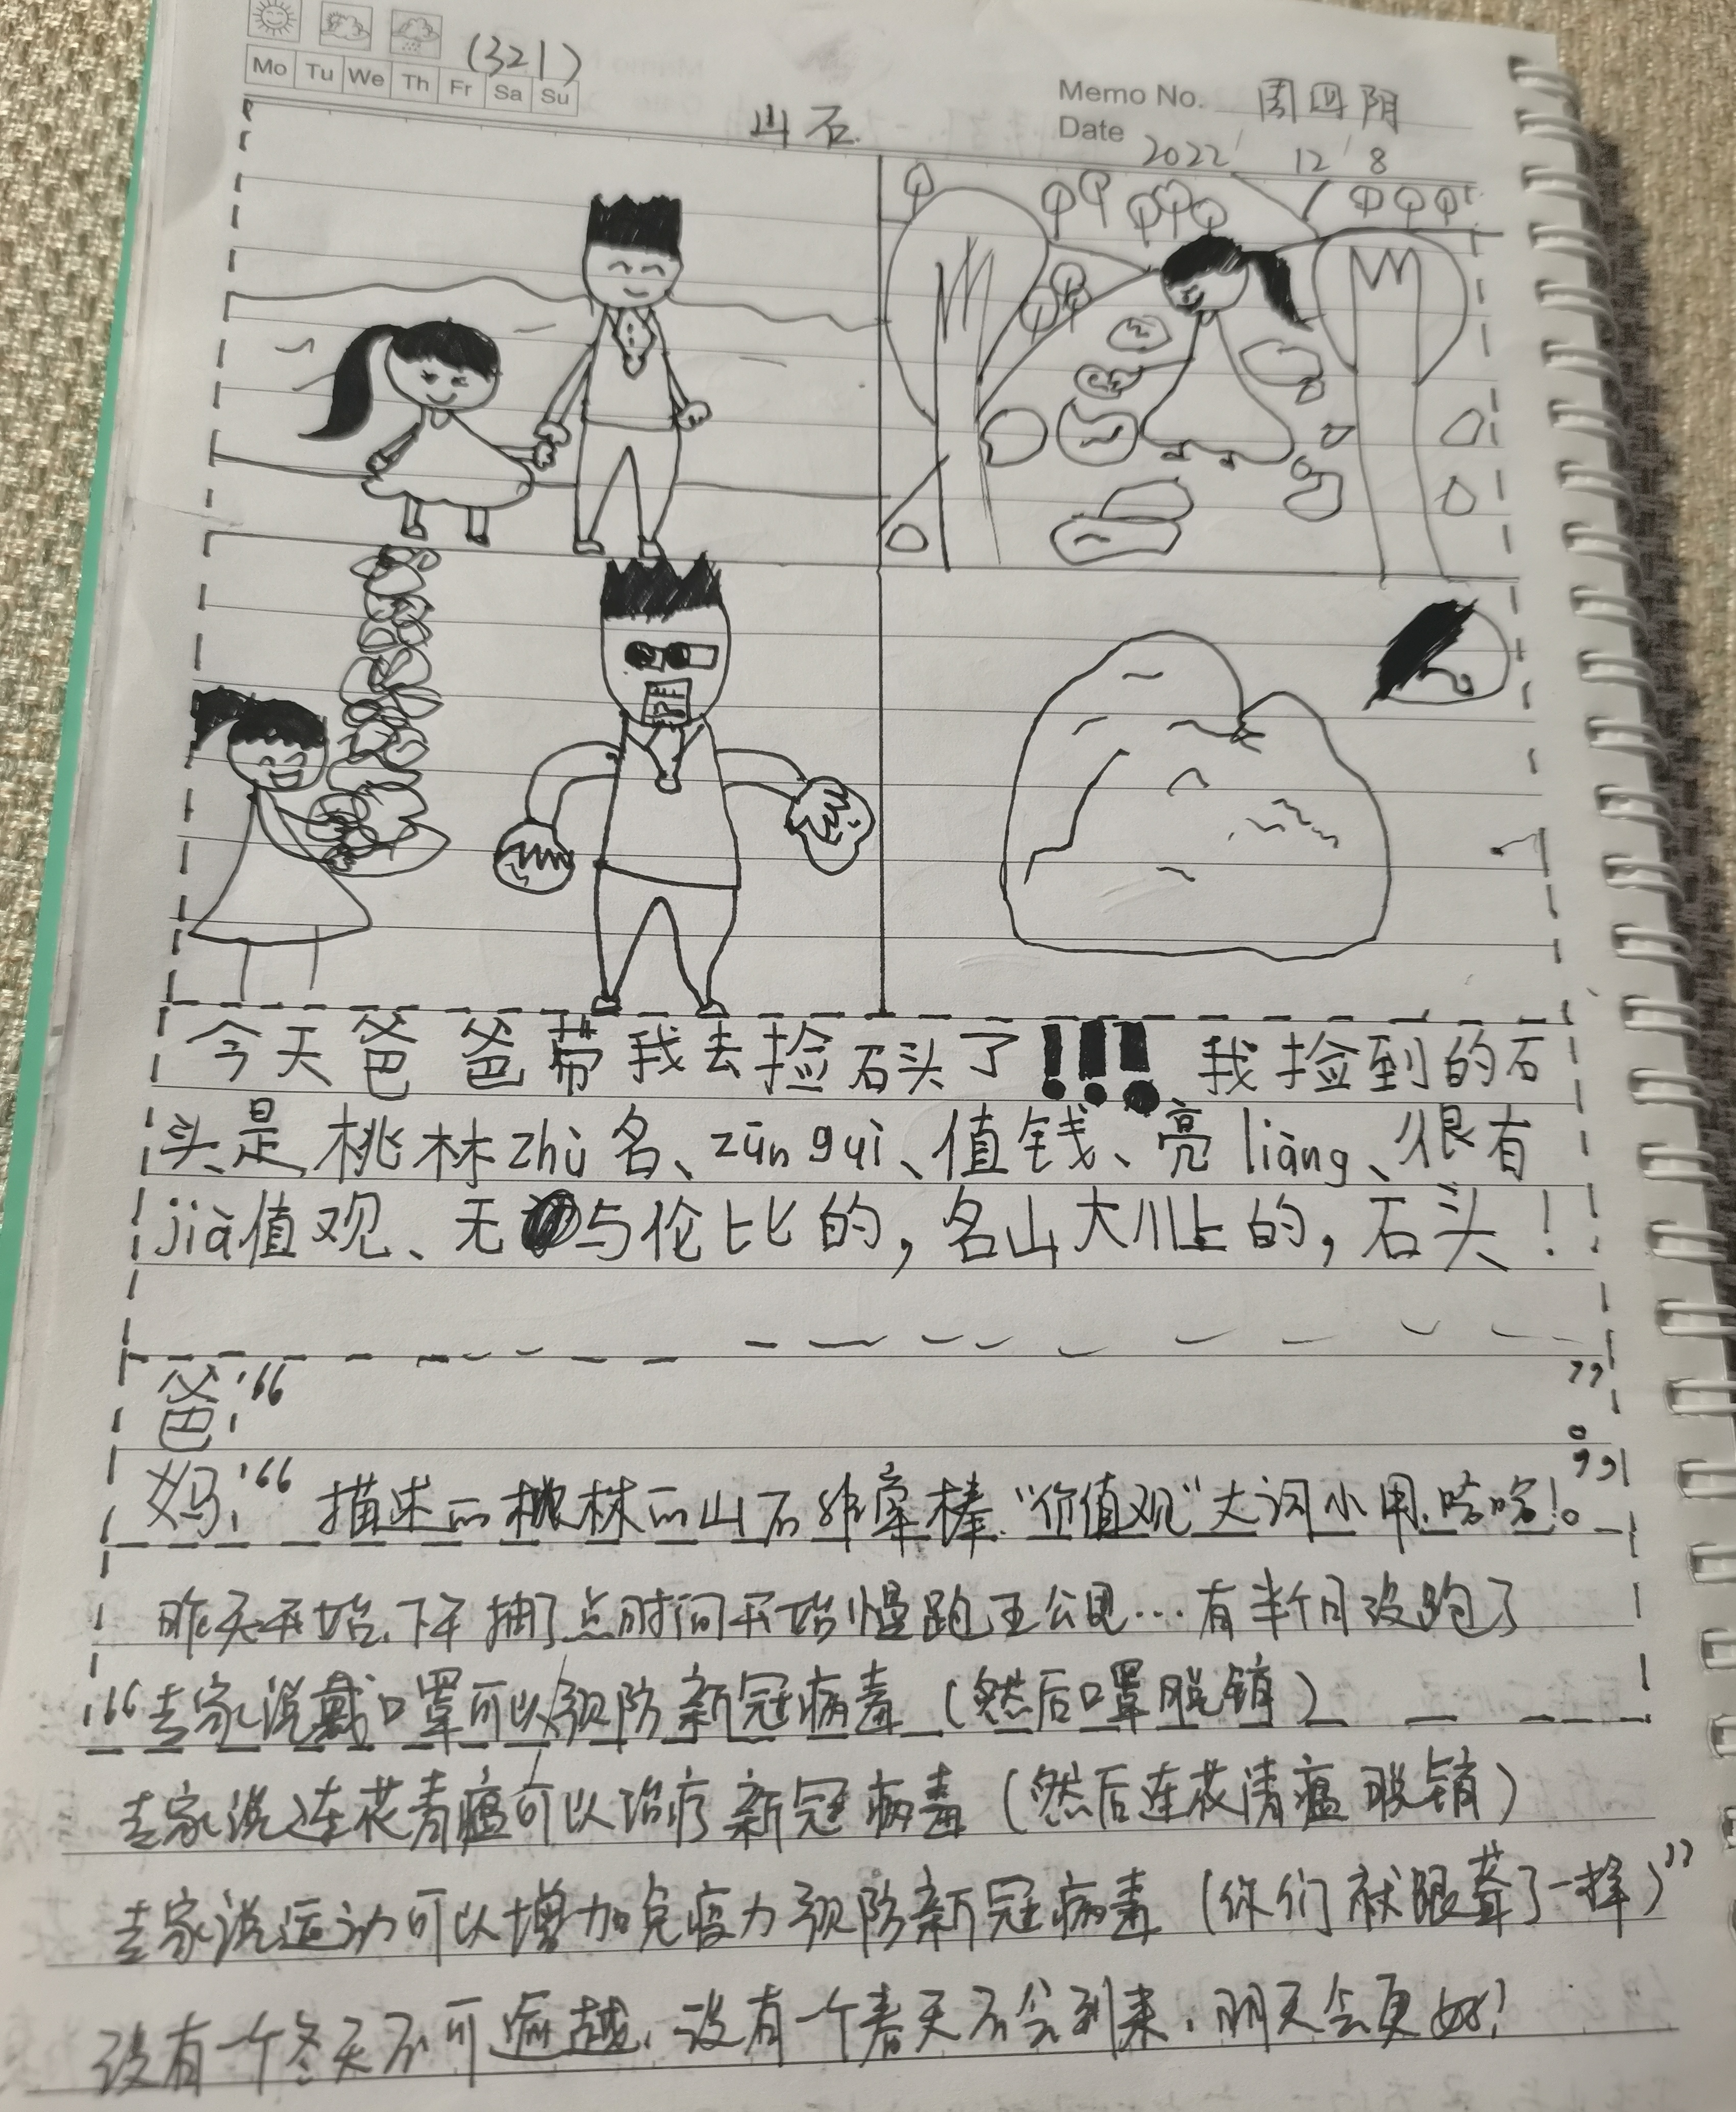 (321)
Mo Tu We Th Fr Sa Su
Memo No. 周四阴
山石
Date 2022 / 12 / 8
今天爸爸带我去捡石头了!!! 我捡到的石
头是桃林zhù名、zūn guì、值钱、亮liàng、很有
jià值观、无与伦比的,名山大川上的,石头!
爸:“ ”。
妈:“描述的桃林的山石非常棒.“价值观”大词小用.哈哈!。”
昨天开始,下午抽了点时间开始慢跑五公里…有半个月没跑了
“专家说戴口罩可以预防新冠病毒(然后口罩脱销)
专家说连花青瘟可以治疗新冠病毒(然后连花清瘟脱销)
专家说运动可以增加免疫力预防新冠病毒(你们就跟聋了一样)”
没有一个冬天不可逾越,没有一个春天不会到来,明天会更好!